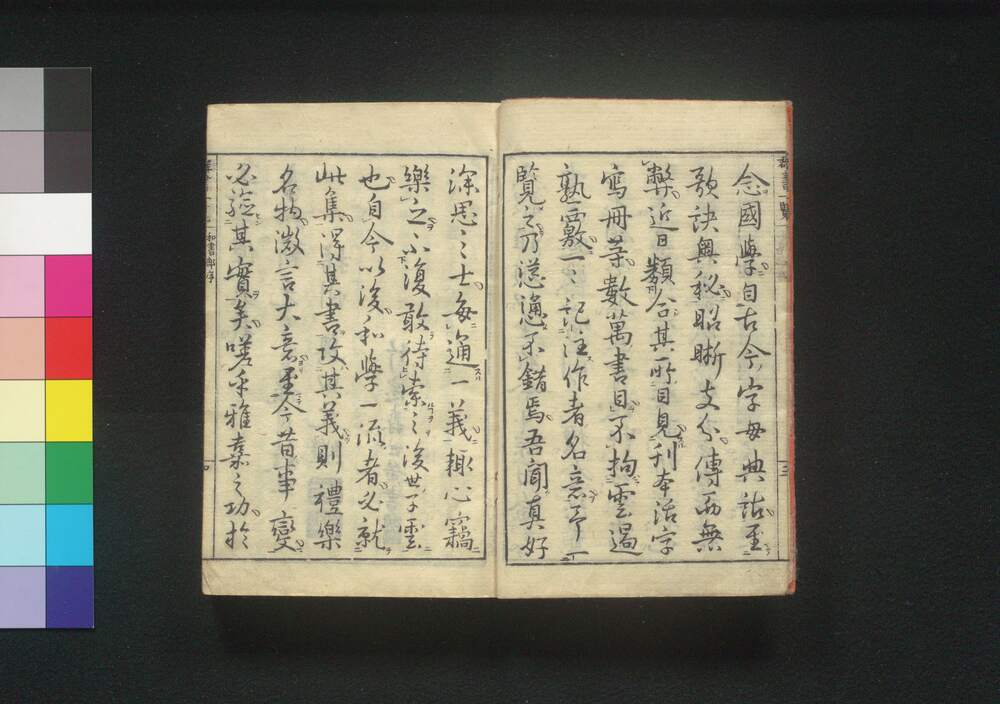 念國學自古今字母典詁至
歌訣奧秘昭晰支分傳而無
弊近日類合其所目見刊本活字
寫冊若數萬書目不拘雲過
熟覈一〻記注作者名意丁一
覽之乃遞不錯焉吾聞真好
深思之士每通一義輒心竊
樂之不復敢待索之後世子雲
也自今以後和學一流者必就
此集得其書攷其義則禮樂
名物微言大意至今昔事變
必驗其實矣嗟乎雅素之功於
和書部序